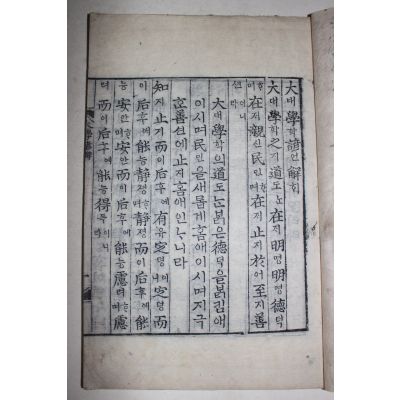 大대學학諺언解ᄒᆡ
大대學학之지道도ᄂᆞᆫ在ᄌᆡ明명明명德덕
ᄒᆞ며在ᄌᆡ親신民민ᄒᆞ며在ᄌᆡ止지於어至지善
션이니라
大대學학의道도ᄂᆞᆫ볽은德덕을볽킴애
이시며民민을새롭게홈애이시며지극
ᄒᆞᆫ善션에止지홈애인ᄂᆞ니라
知지止지而이后후에有유定뎡이니定뎡而
이后후에能능靜졍ᄒᆞ며靜졍而이后후에能
능安안ᄒᆞ며安안而이后후에能능慮려ᄒᆞ며慮
려而이后후에能능得득이니라